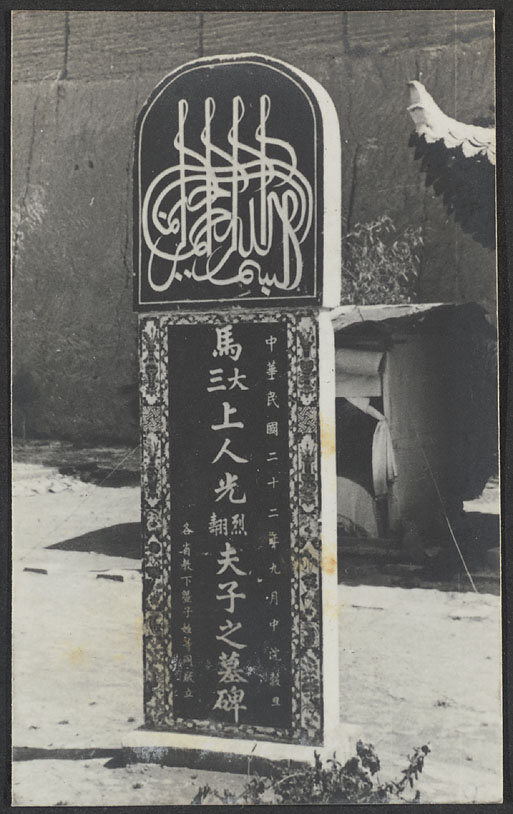 بسم الله الرحمن الرحيم
中華民國二十二年九月中浣穀旦
馬大三上人光烈翔夫子之墓碑
各省教下暨子姪等同敬立